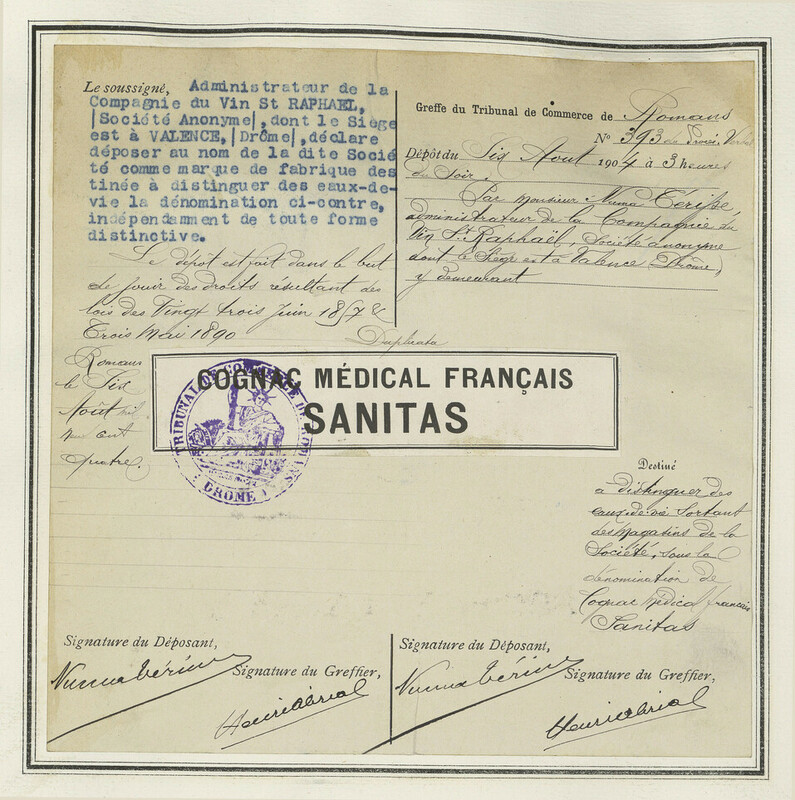 Le soussigné, Administrateur de la
Compagnie du Vin St RAPHAEL,
|Société Anonyme|, dont le Siège
est à VALENCE, |Drôme|, déclare
déposer au nom de la dite Socié
té comme marque de fabrique des
tinée à distinguer des eaux-de-
vie la dénomination ci-contre,
indépendamment de toute forme
distinctive.
Le dépôt est fait dans le but
de jouir des droits résultant des
lois des Vingt trois Juin 1857 &
Trois Mai 1890
Romans
le Six
Août mil
neuf cent
quatre.
Greffe du Tribunal de Commerce de Romans
No 393 de Procès Verbal
Dépôt du Six Aout 1904 à 3 heures
du Soir.
Par Monsieur Numa
administrateur de la Compagnie du
Vin St Raphaël, Société anonyme
dont le Siège est à Valence (Drôme),
y demeurant
Duplicata
COGNAC MÉDICAL FRANÇAIS
SANITAS
TRIBUNAL DE COMMERCE DE ROMANS
DROME
Destiné
à distinguer des
eaux-de-vie Sortant
des Magasins de la
Société, sous la
dénomination de
Cognac Médical français
Sanitas
Signature du Déposant,
Signature du Greffier,
Signature du Déposant,
Signature du Greffier,